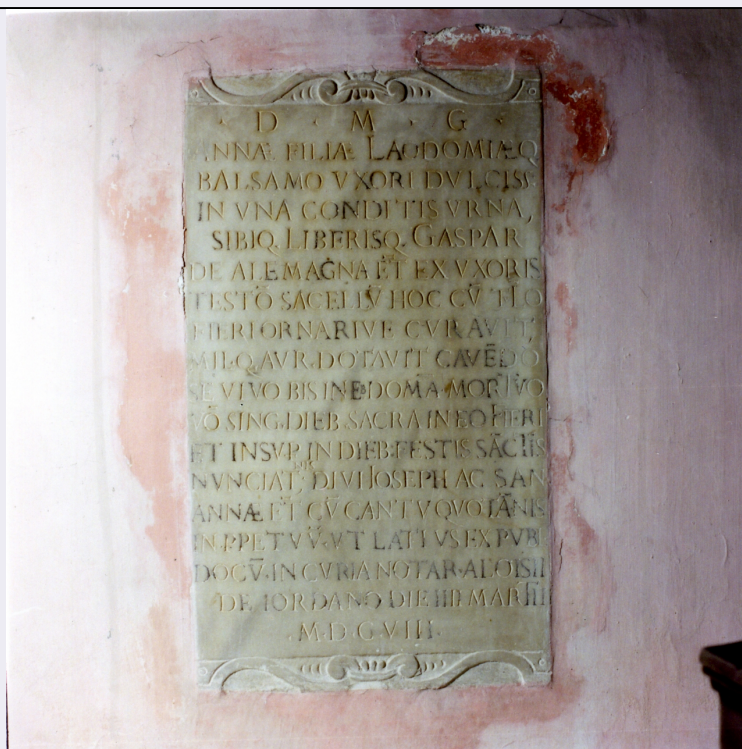 D · M · G
ANNÆ FILIÆ LAODOMIÆQ
BALSAMO VXORI DVLCISS
IN VNA CONDITIS VRNA,
SIBIQ. LIBERISQ. GASPAR
DE ALEMAGNA ET EX VXORIS
TESTŌ SACELLV̄ HOC CV̄ TLO
FIERI ORNARIVE CVRAVIT,
MILQ AVR. DOTAVIT CAVĒDO
SE VIVO BIS IN EBDOMA. MORTVO
VŌ SING. DIEB. SACRA IN EO FIERI
ET INSVP. IN DIEB. FESTIS SĀCTIS
NVNCIAT, DIVI IOSEPH AC SAN
ANNÆ ET CV̄ CANTV QVOTĀNIS
IN PPETVV̄. VT LATIVS EX PVBL
DOCV̄. IN CVRIA NOTAR. ALOISII
DE IORDANO DIE IIII MARTII
M.D.C.VIII.